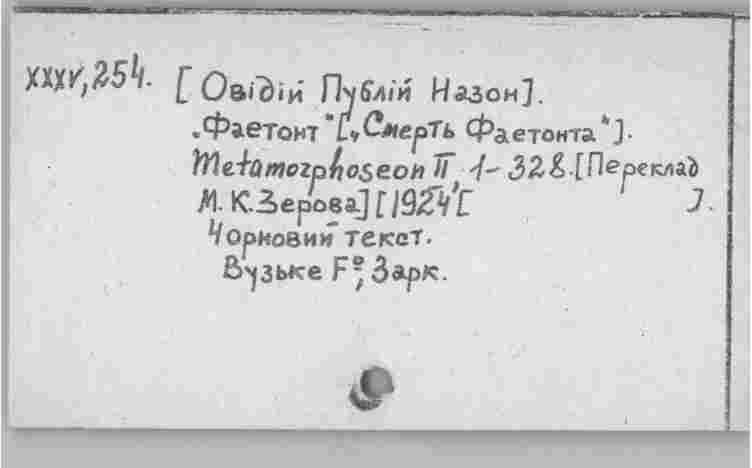 XXXV, 254. [Овідій Публій Назон].
„Фаетонт" [„Смерть Фаетонта"].
Metamorphoseon II, 1-328. [Переклад
М. К. Зерова] [1924 [ ].
Чорновий текст.
Вузьке F°, 3 арк.